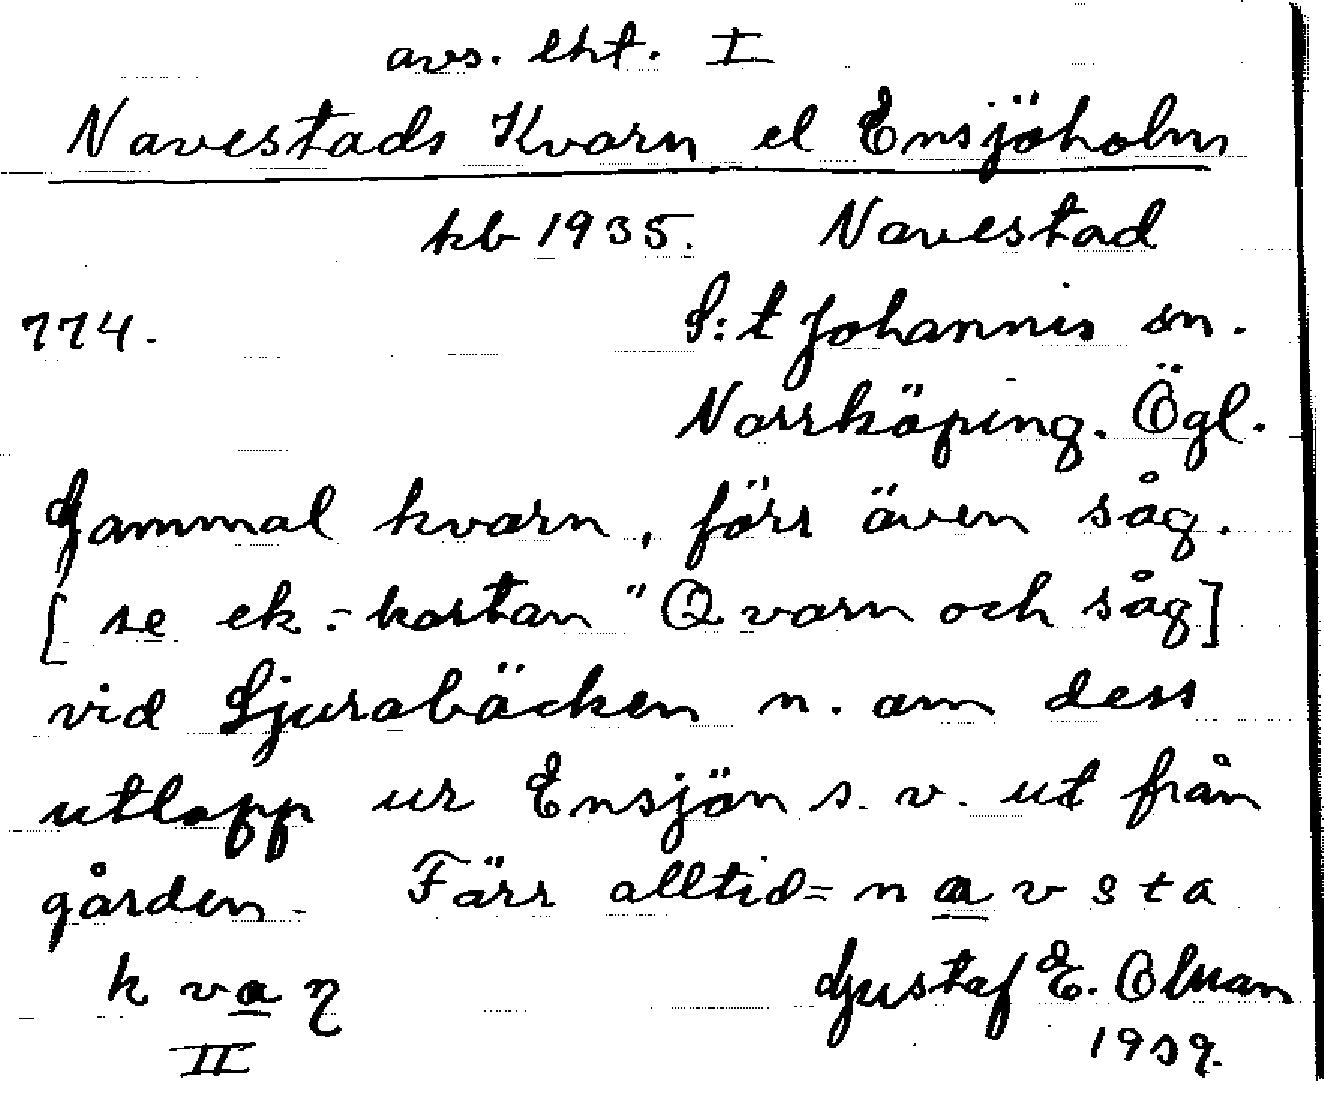 avs. lht. I
Navestads Kvarn el Ensjöholm
kb 1935. Navestad
774. S:t Johannis sn.
Norrköping. Ögl.
Gammal kvarn, förr även såg.
[se ek.-kartan "Qvarn och såg]
vid Ljurabäcken n. om dess
utlopp ur Ensjön s. v. ut från
gården. Förr alltid= n a v s t a
k v a ŋ Gustaf E. Olman
II 1939.